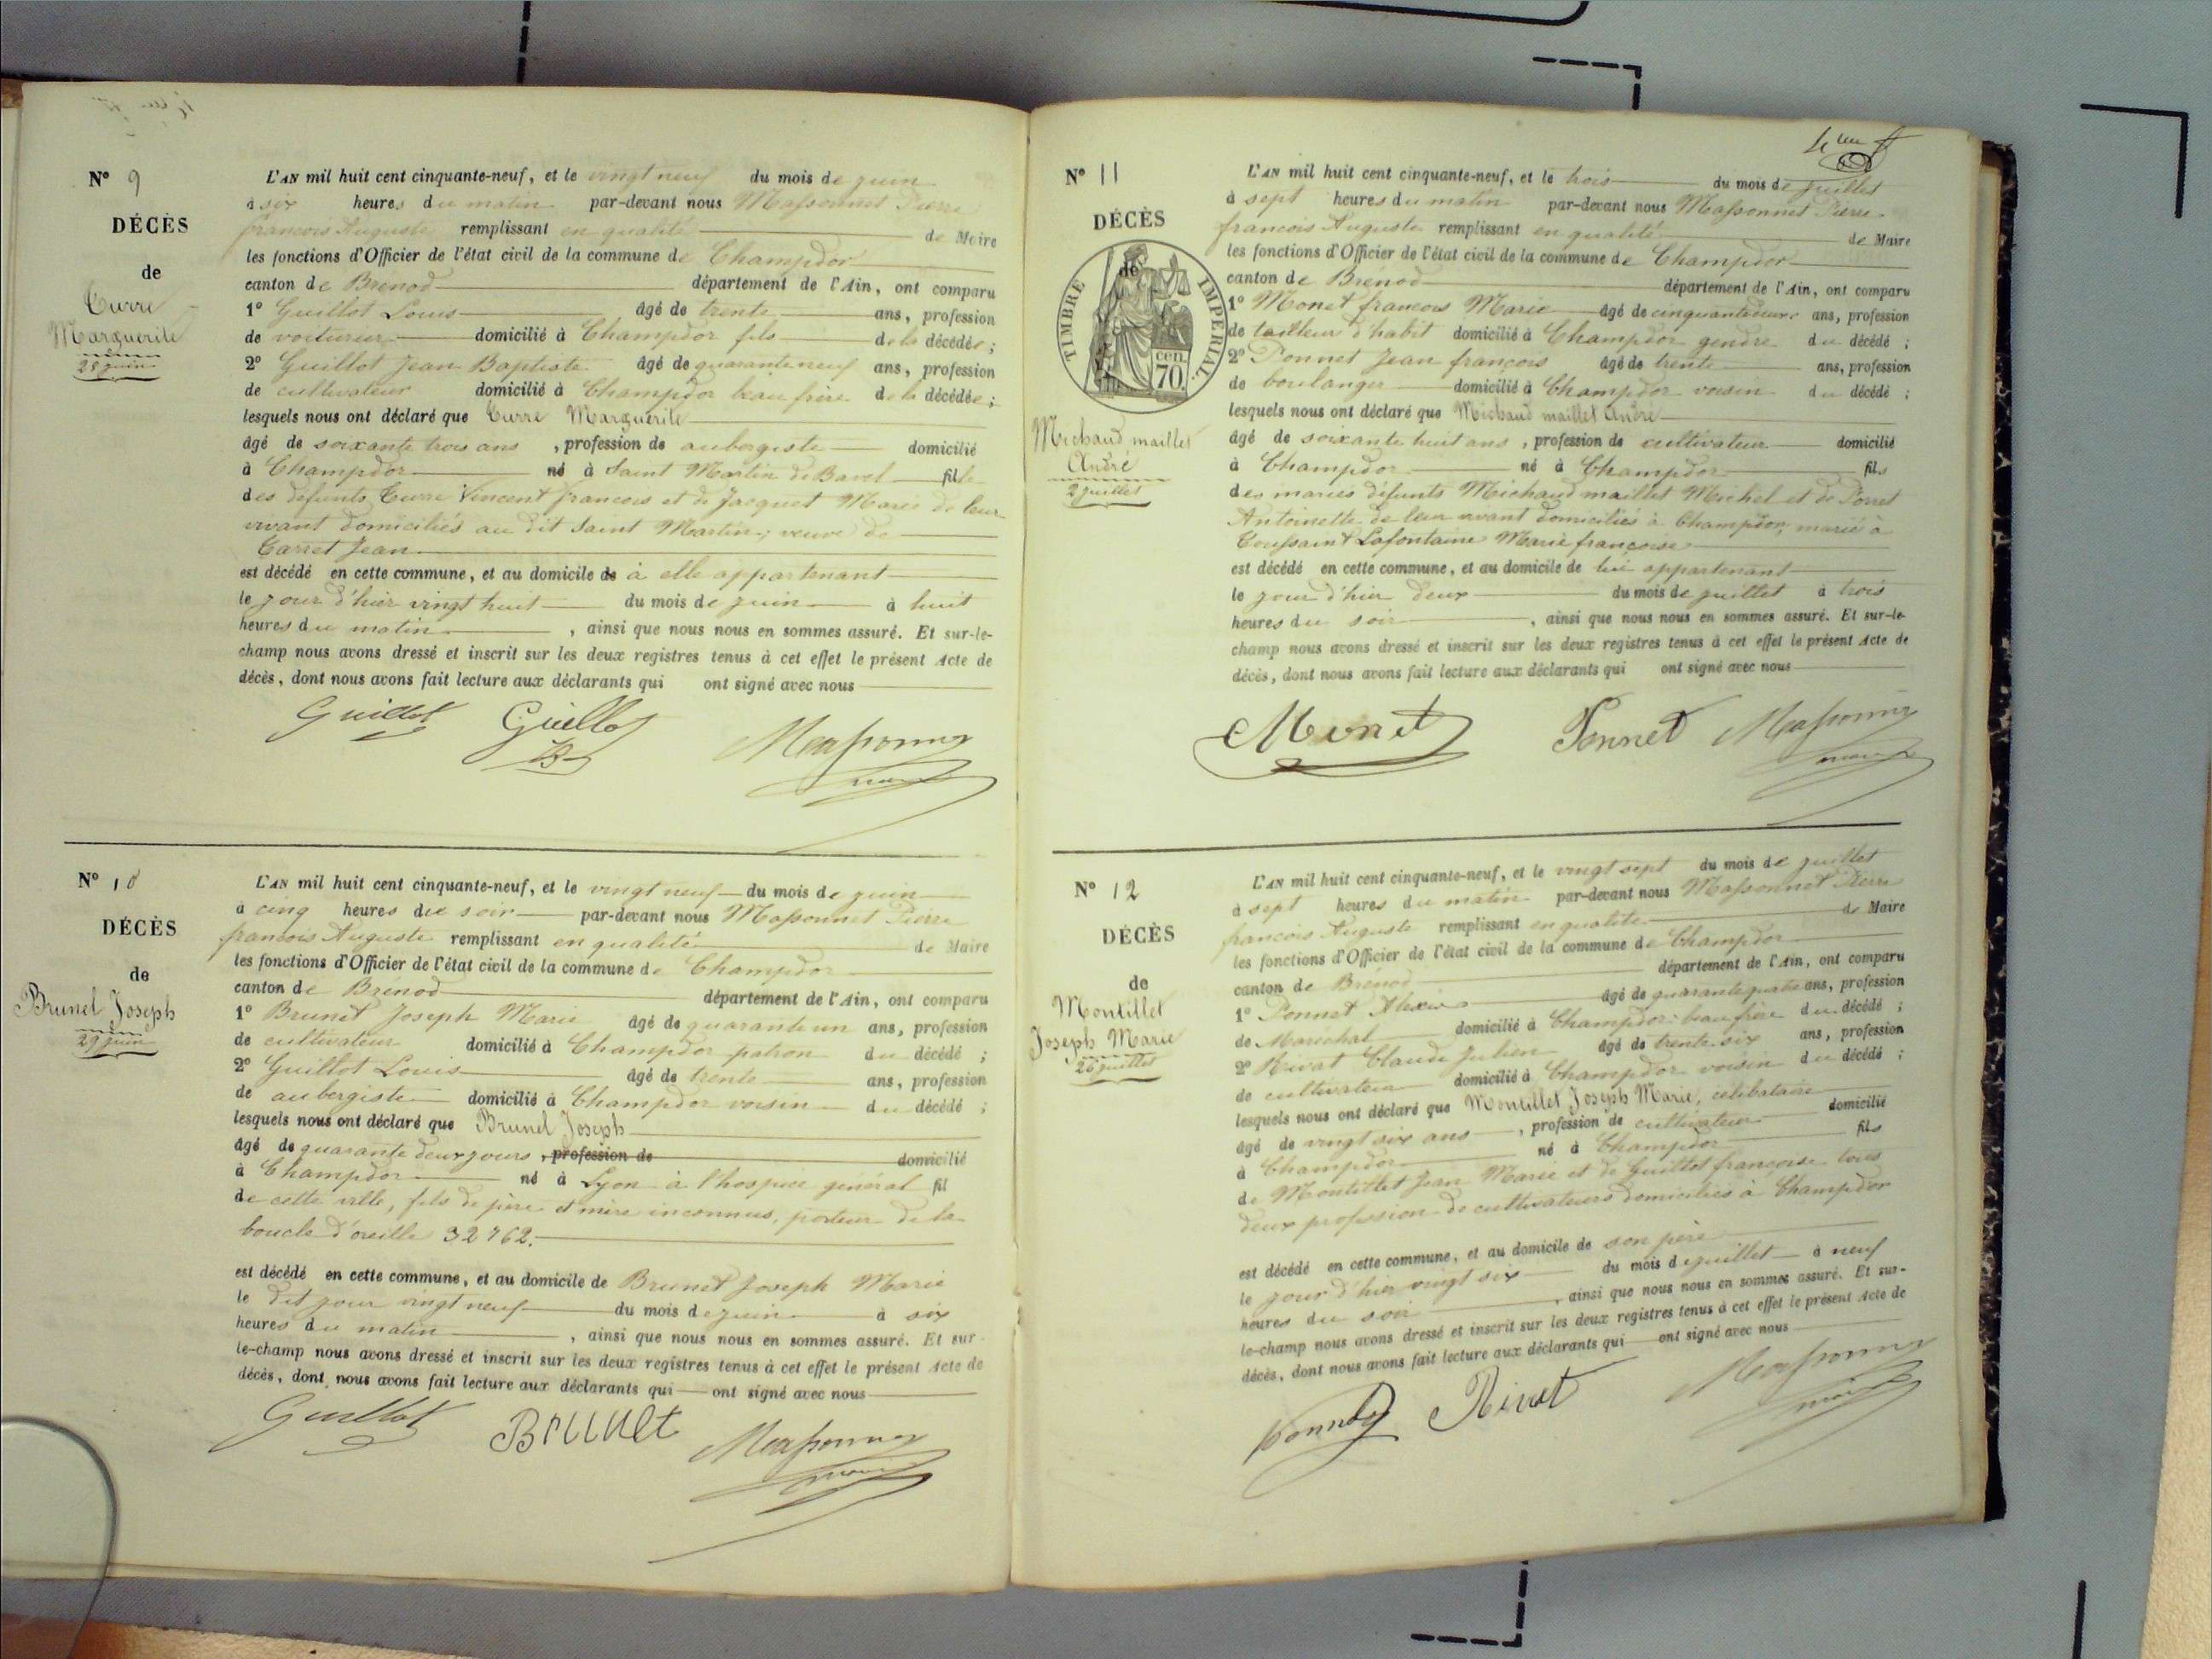 N° 9
DÉCÈS
de
Curre
Marguerite
28 juin
L'AN mil huit cent cinquante-neuf, et le vingt neuf du mois de juin
à six heures du matin par-devant nous Massonnet Pierre
francois Auguste remplissant en qualité de Maire
les fonctions d'Officier de l'état civil de la commune de Champdor
canton de Brenod département de l'Ain, ont comparu
1° Guillot Louis âgé de trente ans, profession
de voiturier domicilié à Champdor fils de la décédée ;
2° Guillot Jean Baptiste âgé de quarante neuf ans, profession
de cultivateur domicilié à Champdor beau frère de la décédée ;
lesquels nous ont déclaré que Curre Marguerite
âgé de soixante trois ans , profession de aubergiste domicilié
à Champdor né à Saint Martin de Bavel fille
des defunts Curre Vincent francois et de Jacquet Marie de leur
vivant domiciliés au dit Saint Martin ; veuve de
Carret Jean
est décédé en cette commune, et au domicile de à elle appartenant
le jour d'hier vingt huit du mois de juin à huit
heures du matin , ainsi que nous nous en sommes assuré. Et sur-le-
champ nous avons dressé et inscrit sur les deux registres tenus à cet effet le présent Acte de
décès, dont nous avons fait lecture aux déclarants qui ont signé avec nous
Guillot Guillot JB Massonnet
maire
N° 10
DÉCÈS
de
Brunel Joseph
29 juin
L'AN mil huit cent cinquante-neuf, et le vingt neuf du mois de juin
à cinq heures du soir par-devant nous Massonnet Pierre
francois Auguste remplissant en qualité de Maire
les fonctions d'Officier de l'état civil de la commune de Champdor
canton de Brenod département de l'Ain, ont comparu
1° Brunet Joseph Marie âgé de quarante un ans, profession
de cultivateur domicilié à Champdor patron du décédé ;
2° Guillot Louis âgé de trente ans, profession
de aubergiste domicilié à Champdor voisin du décédé ;
lesquels nous ont déclaré que Brunel Joseph
âgé de quarante deux jours , profession de domicilié
à Champdor né à Lyon à l'hospice général fil
de cette ville, fils de père et mère inconnus, porteur de la
boucle d'oreille 32762.
est décédé en cette commune, et au domicile de Brunet Joseph Marie
le dit jour vingt neuf du mois de juin à six
heures du matin , ainsi que nous nous en sommes assuré. Et sur-
le-champ nous avons dressé et inscrit sur les deux registres tenus à cet effet le présent Acte de
décès, dont nous avons fait lecture aux déclarants qui ont signé avec nous
Guillot Brunet Massonnet
maire
N° 11
DÉCÈS
de
TIMBRE IMPERIAL
70 cen
Michaud maillet
André
2 juillet
L'AN mil huit cent cinquante-neuf, et le trois du mois de juillet
à sept heures du matin par-devant nous Massonnet Pierre
francois Auguste remplissant en qualité de Maire
les fonctions d'Officier de l'état civil de la commune de Champdor
canton de Brénod département de l'Ain, ont comparu
1° Monet francois Marie âgé de cinquante deux ans, profession
de tailleur d'habit domicilié à Champdor gendre du décédé ;
2° Ponnet Jean françois âgé de trente ans, profession
de boulanger domicilié à Champdor voisin du décédé ;
lesquels nous ont déclaré que Michaud maillet André
âgé de soixante huit ans , profession de cultivateur domicilié
à Champdor né à Champdor fils
des mariés défunts Michaud maillet Michel et de Porret
Antoinette de leur vivant domiciliés à Champdor, marié à
Toussaint Lafontaine Marie françoise
est décédé en cette commune, et au domicile de lui appartenant
le jour d'hier deux du mois de juillet à trois
heures du soir , ainsi que nous nous en sommes assuré. Et sur-le-
champ nous avons dressé et inscrit sur les deux registres tenus à cet effet le présent Acte de
décès, dont nous avons fait lecture aux déclarants qui ont signé avec nous
Monet Ponnet Massonnet
maire
N° 12
DÉCÈS
de
Montillet
Joseph Marie
26 juillet
L'AN mil huit cent cinquante-neuf, et le vingt sept du mois de juillet
à sept heures du matin par-devant nous Massonnet Pierre
francois Auguste remplissant en qualité de Maire
les fonctions d'Officier de l'état civil de la commune de Champdor
canton de Brénod département de l'Ain, ont comparu
1° Ponnet Alexis âgé de quarante quatre ans, profession
de Maréchal domicilié à Champdor beau frère du décédé ;
2° Rivat Claude Julien âgé de trente six ans, profession
de cultivateur domicilié à Champdor voisin du décédé ;
lesquels nous ont déclaré que Montillet Joseph Marie, célibataire
âgé de vingt six ans , profession de cultivateur domicilié
à Champdor né à Champdor fils
de Montillet Jean Marie et de Guillot françoise tous
deux profession de cultivateurs domiciliés à Champdor
est décédé en cette commune, et au domicile de son père
le jour d'hier vingt six du mois de juillet à neuf
heures du soir , ainsi que nous nous en sommes assuré. Et sur-
le-champ nous avons dressé et inscrit sur les deux registres tenus à cet effet le présent Acte de
décès, dont nous avons fait lecture aux déclarants qui ont signé avec nous
Ponnet Rivat Massonnet
maire